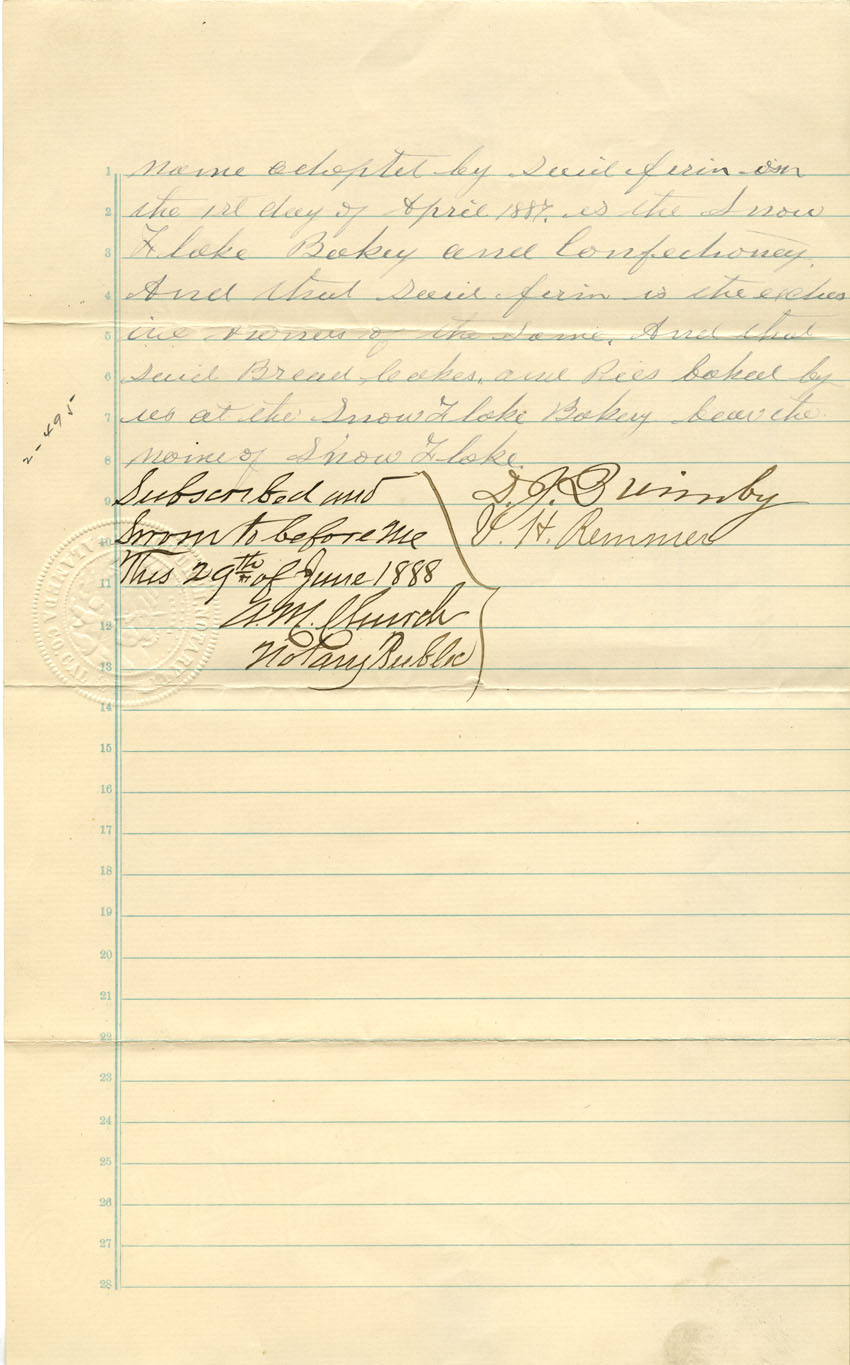 1 name adopted by said firm on
2 the 1st day of April 1887, is the Snow
3 Flake Bakey and Confectioney.
4 And that said firm is the exclus
5 ive owners of the same. And that
6 said Bread, Cakes, and Pies baked by
7 us at the Snow Flake Bakery bear the
8 name of Snow Flake.
9 Subscribed and
10 Sworn to before me
11 This 29th of June 1888
12 A. M. Church
13 Notary Public
D. J. Brimby
V. H. Remmer
2-495
NOTARY
ALAMEDA CO. CAL.
14
15
16
17
18
19
20
21
22
23
24
25
26
27
28